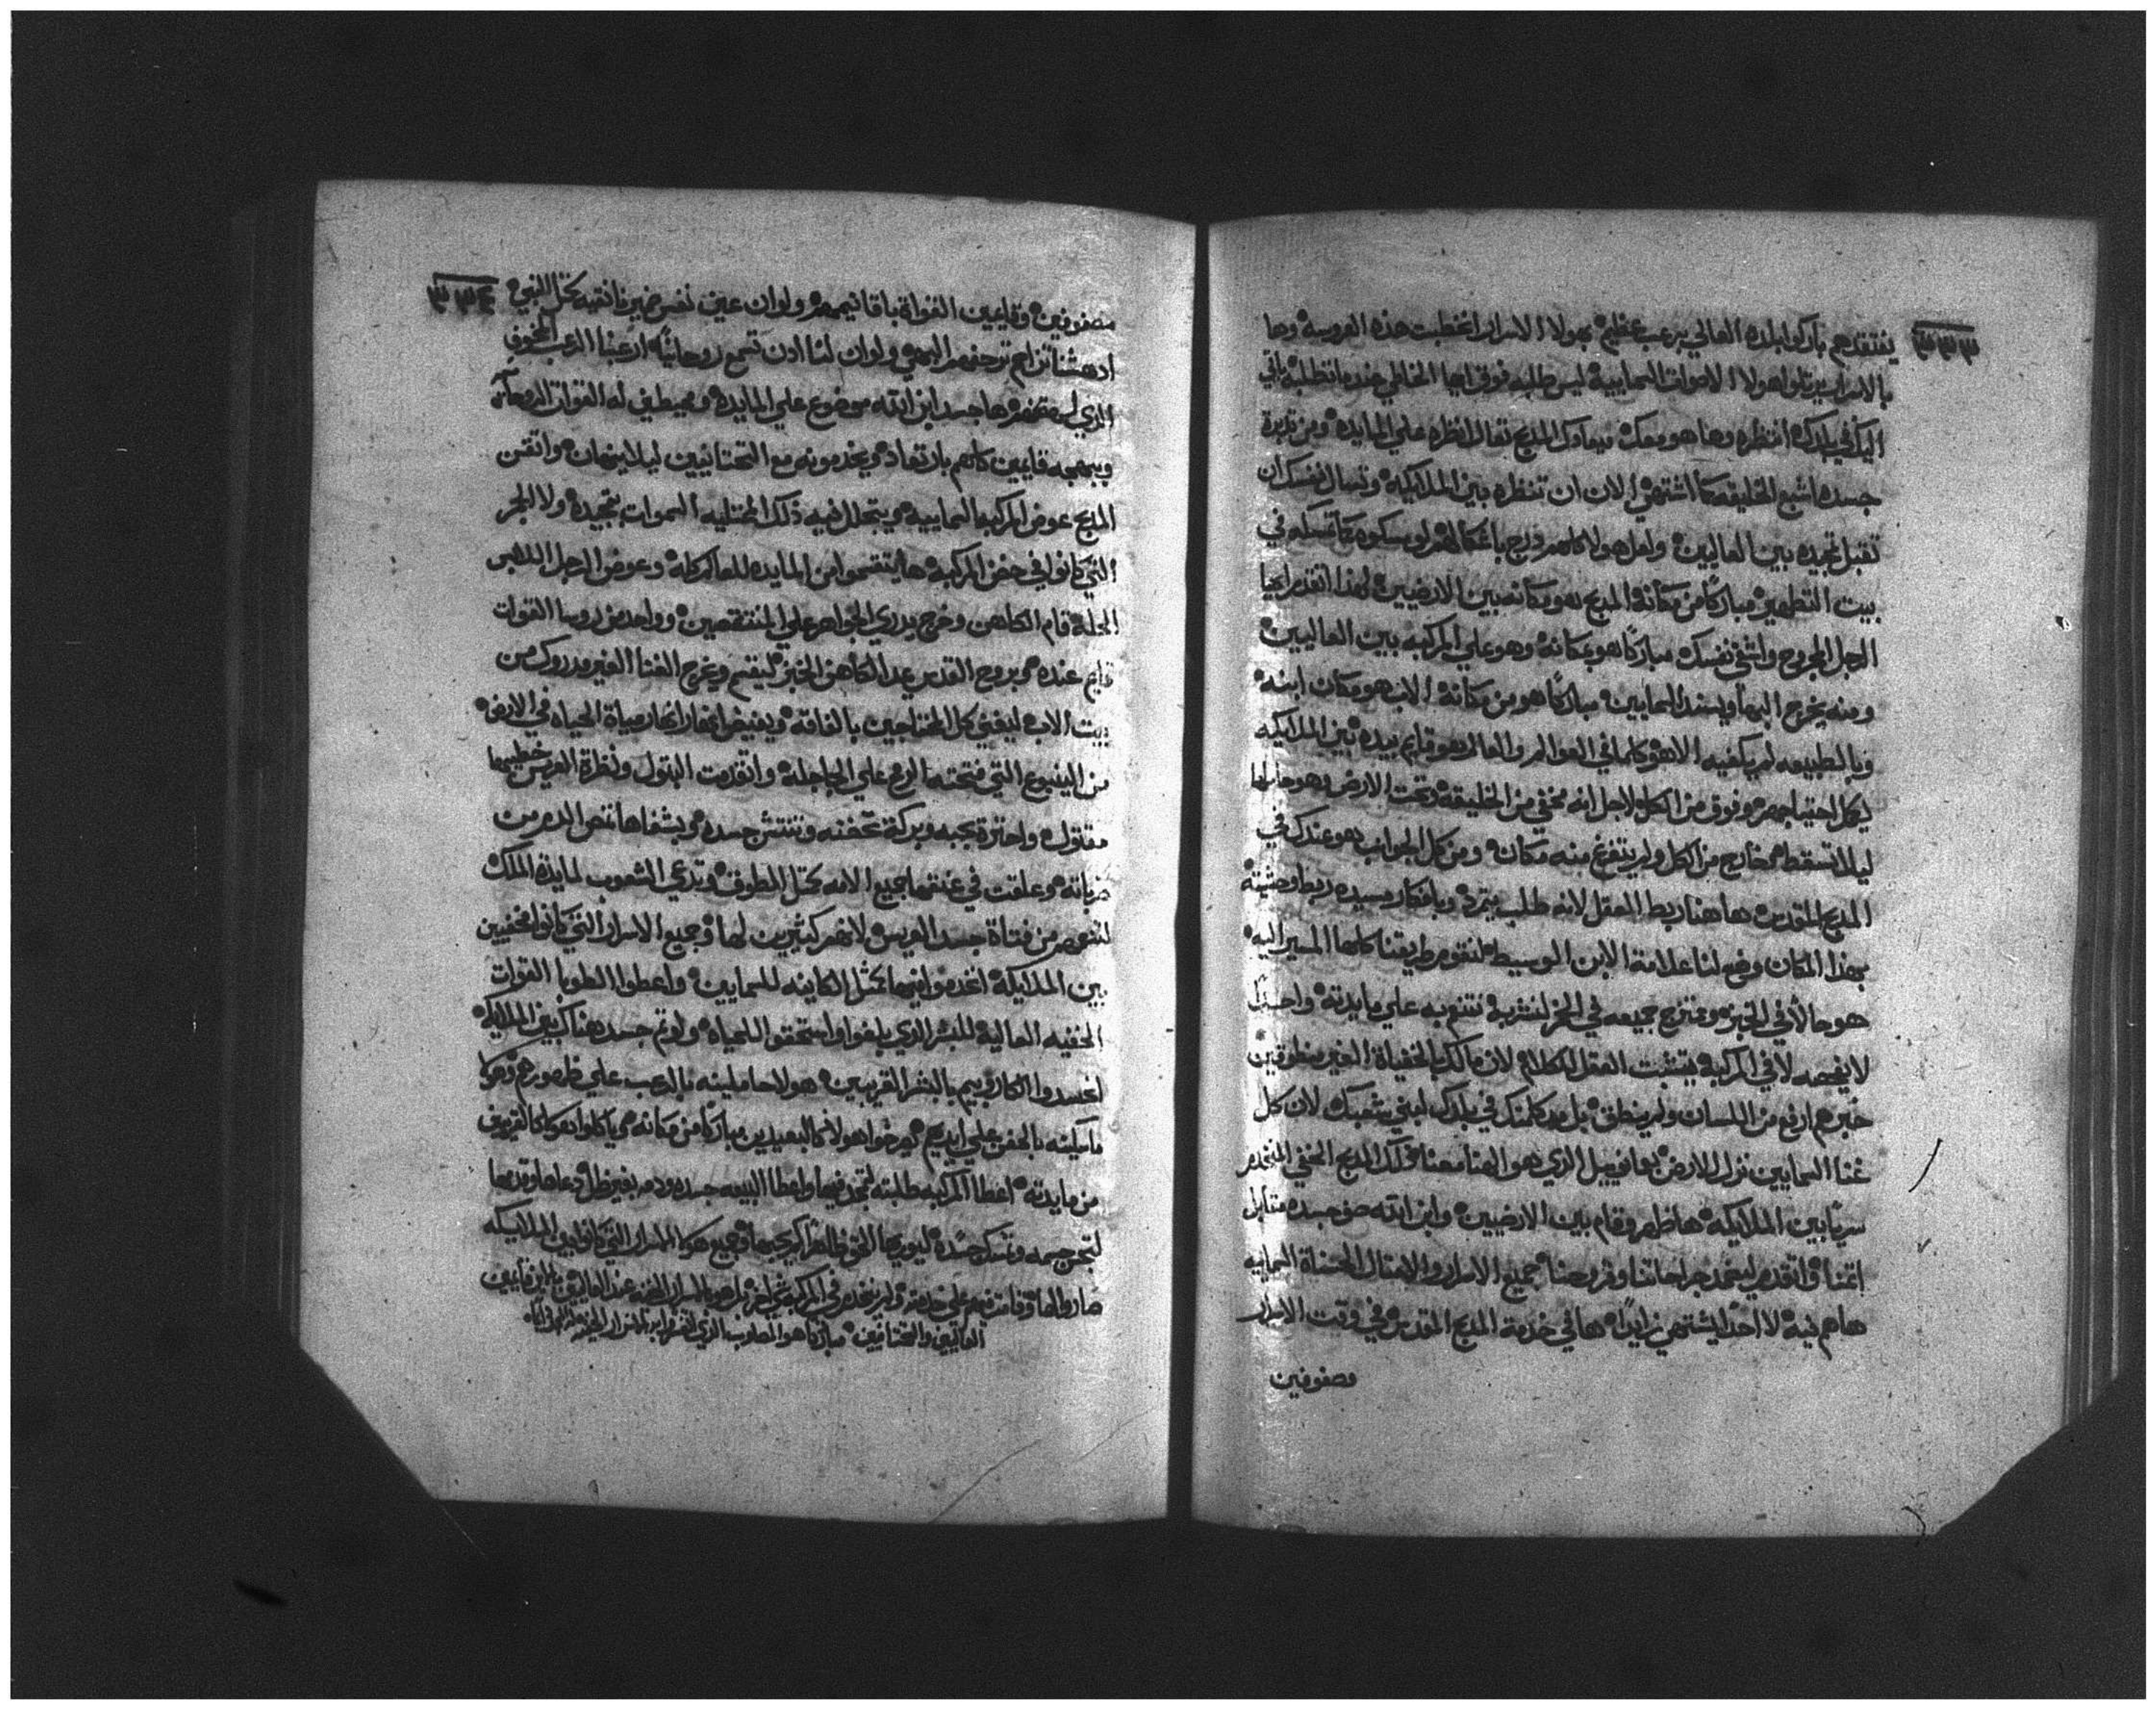 ٣٣٣
يفتقدهم باركوا بلده العالي برعب عظيم بهولا الاسرار اغتطبت هذه العروسه وها
بالاسرار يرتلوا هولا الاصوات السماييه ليس طلبه فوق ايها الخاطي جنده انطلبه ياتي
اليك في بلدك انظره وها هو معك فيما وك المدبح تعال انظره علي المايده ومن
جسده اشبع الخليقه كما اشتهي الان ان تنظره بين الملايكه وتسال نفسك ان
تقبل تمجيده بين العاليين ولعل هولا كلهم
بيت التطهير مباركًا من مكانه المدبح هو مكانه بين الارضيين لهدا اتقدم ايها
الرجل المجروح واشفي نفسك مباركًا هو بمكانه وهو علي المركبه بين العاليين
ومنه يخرج البها ويسند السماييين مباركًا هو من مكانه الاب هو مكان ابنه
وبالطبيعه لم يكفيه الا هو كلما في العوالم والعالم هو قايم بيده بين الملايكه
لكل احتياجهم وفوق من الكل لاجل انه مخفي من الخليقه وتحت الارض وهو حاملها
ليلا تسقط خارج من الكل ولم يتفرغ منه مكان ومن كل الجوانب هو عندك في
المدبح المقدس هاهنا ربط العقل لانه طلب يتمرد وبافكار يسيده ربط وحشيته
بهذا المكان وضع لنا علامة الابن الوسيط لنقوم طريقنا كلها المسير اليه
هو حالاً في الخبز وممتزج جميعه في الخمر لنشربه نتنعم به علي مايدته واحشا
لا يفحصه لا في المركبه يتشبت العقل الكلام لان مالك بالخفياة الغير منطوقين
خبرهم ارفع من اللسان ولم ينطق بل مد كلمتك في بلدك لبني شعبك لان كل
غنا السماييين نزل للارض بعمانوييل الذي هو الهنا معنا دلك المدبح الخفي المنخدم
سريًا بين الملايكه ها ظهر وقام بين الارضيين وابن الله صف جسده مقابل
اتمنا واتقدم ليضمد جراحاتنا وقروحنا جميع الاسرار والامثال الحسناة السماييه
هاهم فيه لا احدًا يشتهي زايدًا ها في خدمة المدبح المقدس في وقت الاسرار
مصفوفين
٣٣٤
مصفوفين وقايمين القواة باقانيمهم ولو ان عين نفس ضميرنا نقيه كمثل النبي
ادهشنا تزاحم ترحفهم البهي ولو ان لنا ادن تسمع روحانيًا ارعبنا الرعب المخوف
الذي لصفهم ها جسد ابن الله موضوع علي المايده ومحيطين له القوات الروحانيه
وببهجه قايمين كلهم بارتعاد ويخدمونه مع التحتانيين ليلا يتهان واتقن
المدبح عوض المركبه السماييه يتجلل فيه ذلك الممتليه السموات بتمجيده ولا الجمر
التي كانوا في حضن المركبه ها يتقسموا من المايده للعالم كله وعوض الرجل اللابس
الحله قام الكاهن وخرج يدري الجواهر علي المنتقصين وواحد من روسا القوات
قايم عنده بروح القدس يمد الكاهن الخبز ليقسم ويخرج الغنا الغير مدروك من
بيت الاب ليغني كل المحتاجين بالفاقه ويفيض انهار مياة الحياه في الارض
من الينبوع التي فتحته الرمح علي الجاجله واتقدمت البتول ونظرة العريس خطيبها
مقتول واحترة بحبه وبركة تحضنه وتنتش جسده وبشفاها تمص الدم من
ضرباته وعلقت في عنقها جميع الامه كمثل المطوق وتدعي الشعوب لمايدة الملك
لتنعمهم من فتاة جسد العريس لانهم كثيرين لها وجميع الاسرار التي كانوا مخفيين
بين الملايكه انخدموا فيها كمثل الكاينه للسماييين واعطوا الطوبا القوات
الخفيه العاليه للبشر الدي بلغوا واستحقوا للحياه ولو تم حسد هناك بين الملايكه
لحسدوا الكاروبيم بالبشر القريبين هولا حاملينه بالرعب علي ظهورهم وهولا
ماسكينه بالحضن علي ايديهم صرخوا هولا كالبعيدين مباركًا من مكانه ياكلوا هولا كالقريبين
من مايدته اعطا المركبه طلبته لتمجد فيها واعطا البيعه جسده ودمه بغير ظل ودعاها وقدمها
لتحوي جميعه وتمسك جسده ليوريها الحق ظاهرًا كم يحبها وجميع هولا الاسرار التي كانوا بين الملايكه
صاروا لها وقامت فيهم علي خدمته ولم ينخدم في المركبه شي اخر بل هولا الاسرار الخفيه عند العاليين قايمين
العاليين والتحتانيين مباركا هو المحارب الذي